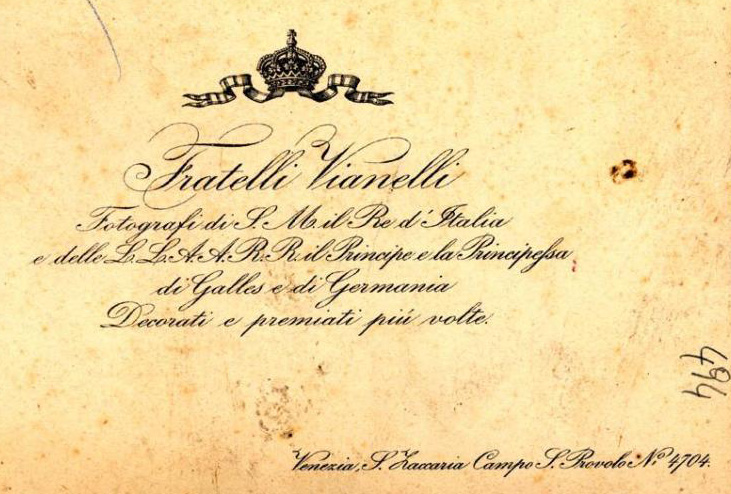 Fratelli Vianelli
Fotografi di S. M. il Re d'Italia
e delle L.L.A.A.R.R. il Principe e la Principessa
di Galles e di Germania
Decorati e premiati piú volte.
494
Venezia, S. Zaccaria Campo S. Provolo Nº 4704.